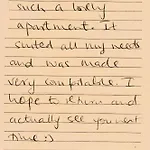 such a lovely
apartment. It
suited all my needs
and was made
very comfortable. I
hope to return and
actually see you next
time :)